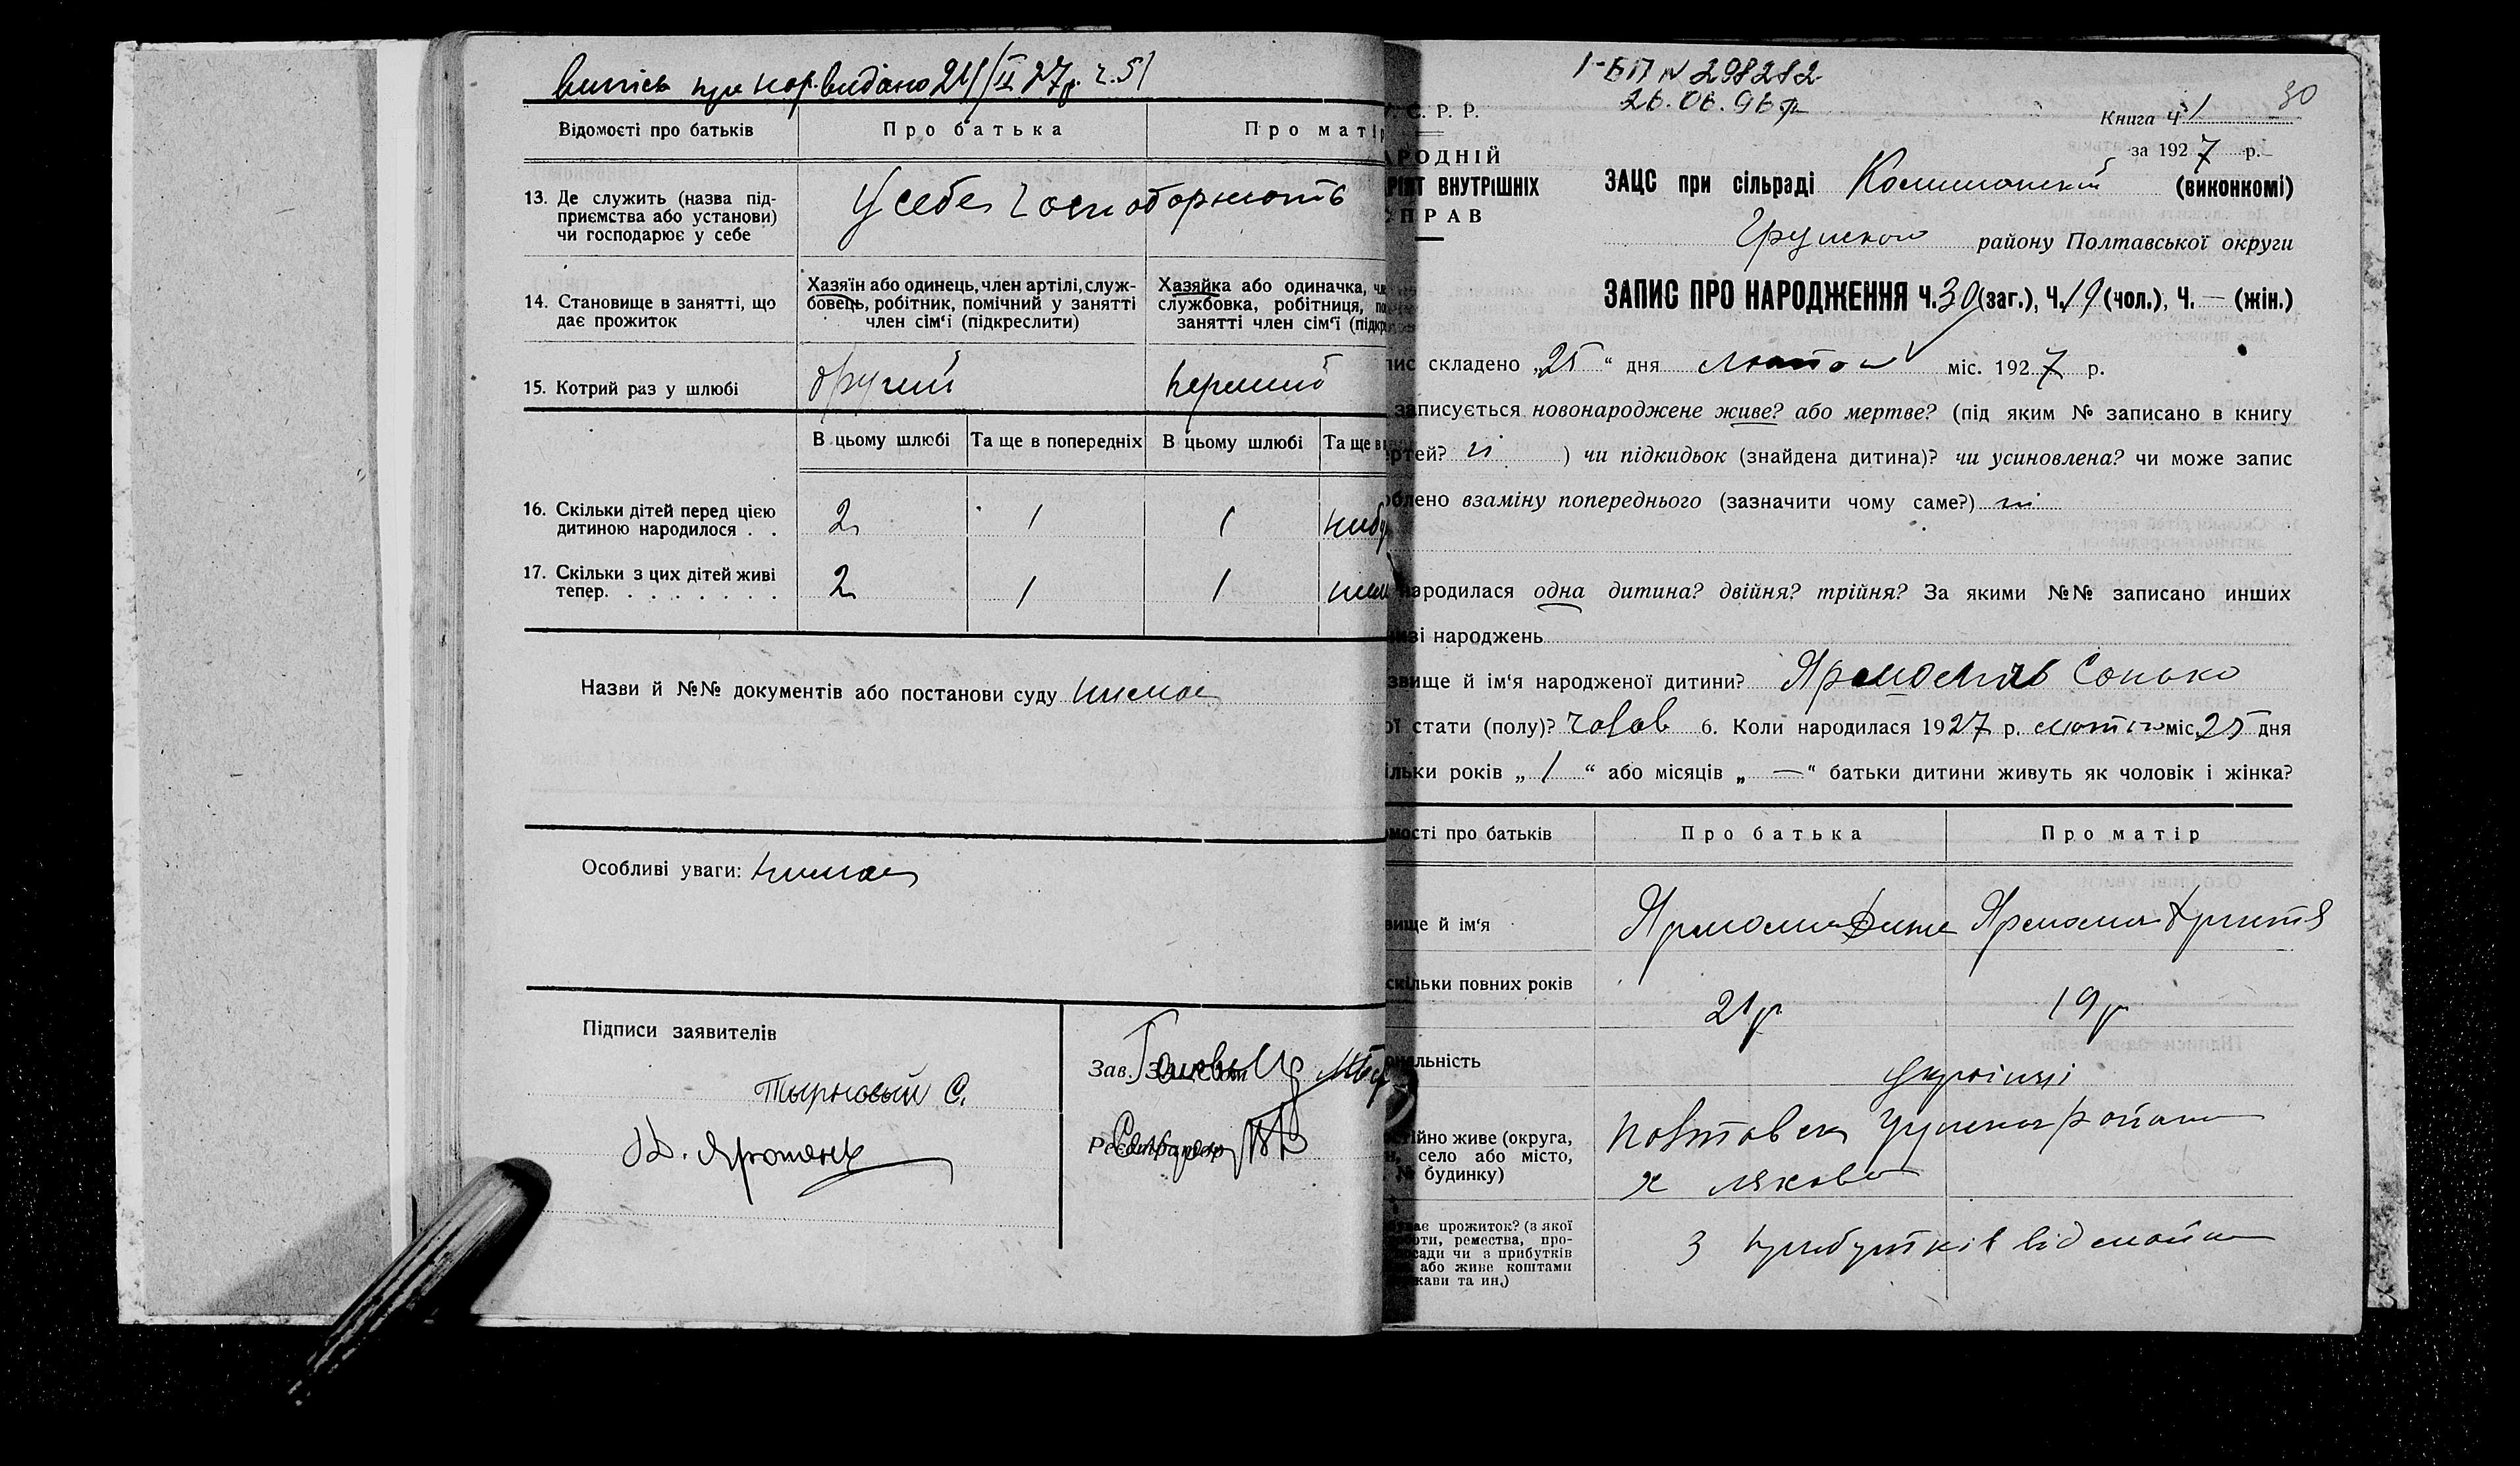 випісь про нар. видано 24/II 27р. ч. 51
Відомості про батьків
Про батька
Про матір
13. Де служить (назва під-
приємства або установи)
чи господарює у себе
У себе господарюють
14. Становище в занятті, що
дає прожиток
Хазяїн або одинець, член артілі, служ-
бовець, робітник, помічний у занятті
член сім'ї (підкреслити)
Хазяйка або одиначка, чл
службовка, робітниця, по
занятті член сім'ї (підкр
15. Котрий раз у шлюбі
другий
перший
В цьому шлюбі
Та ще в попередніх
В цьому шлюбі
Та ще в
16. Скільки дітей перед цією
дитиною народилося . .
2
1
1
17. Скільки з цих дітей живі
тепер. . . . . . . .
2
1
1
Назви й №№ документів або постанови суду немає
Особливі уваги: немає
Підписи заявителів
Тырновый С.
Зав. ЗАЦС'ом
Реєстратор
1-БП № 298282
26.06.96р
30
С. Р. Р.
АРОДНІЙ
РІЯТ ВНУТРІШНІХ
ПРАВ
Книга Ч 1
за 1927 р.
ЗАЦС при сільраді (виконкомі)
району Полтавської округи
ЗАПИС ПРО НАРОДЖЕННЯ Ч. 30 (заг.), Ч. 19 (чол.), Ч. — (жін.)
пис складено „25“ дня лютого міс. 1927 р.
записується новонароджене живе? або мертве? (під яким № записано в книгу
ртей? ні ) чи підкидьок (знайдена дитина)? чи усиновлена? чи може запис
облено взаміну попереднього (зазначити чому саме?) ні
народилася одна дитина? двійня? трійня? За якими №№ записано инших
изі народжень
звище й ім'я народженої дитини?
ої стати (полу)? чолов 6. Коли народилася 1927 р. лютого міс. 25 дня
ільки років „1“ або місяців „—“ батьки дитини живуть як чоловік і жінка?
мості про батьків
Про батька
Про матір
вище й ім'я
скільки повних років
21р
19р
ональність
українці
стійно живе (округа,
н, село або місто,
№ будинку)
Полтавськ Грунського району
х
ває прожиток? (з якої
оти, ремества, про-
сади чи з прибутків
або живе коштами
жави та ин.)
З прибутків від